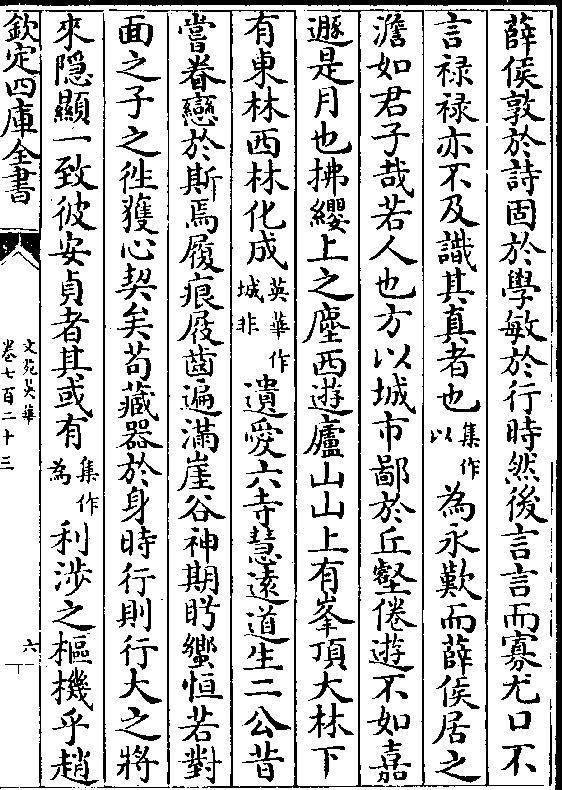 薛侯敦於詩固於學敏於行時然後言言而寡尤口不
言禄禄亦不及識其真者也集作以為永歎而薛侯居之
澹如君子哉若人也方以城市鄙於丘壑倦遊不如嘉
遯是月也拂纓上之塵西遊廬山山上有峯頂大林下
有東林西林化成英華作城非遺愛六寺慧遠道生二公昔
嘗眷戀於斯焉履痕屐齒遍滿崖谷神期肹蠁恒若對
面之子之徃獲心契矣苟藏器於身時行則行大之將
來隱顯一致彼安貞者其或有集作為利涉之樞機乎趙
欽定四庫全書
文苑英華
卷七百二十三
六